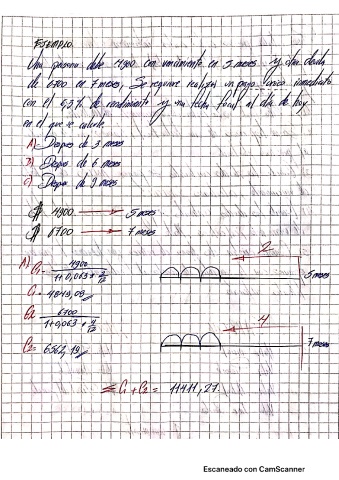 EJEMPLO
Una persona debe 4900 con vencimiento en 5 meses y otra deuda
de 6700 en 7 meses, Se requiere realizar un pago único inmediato
con el 6,3% de rendimiento y su fecha focal al día de hoy
en el que se calcule.
A) Despues de 3 meses
B) Despues de 6 meses
C) Despues de 9 meses
4900 → 5 meses
6700 → 7 meses
A) C1= 4900 / 1+0,063*2/12
2
5 meses
C1= 4849,09
C2= 6700 / 1+0,063*4/12
4
7 meses
C2= 6562,19
C1 + C2 = 11411,27
Escaneado con CamScanner